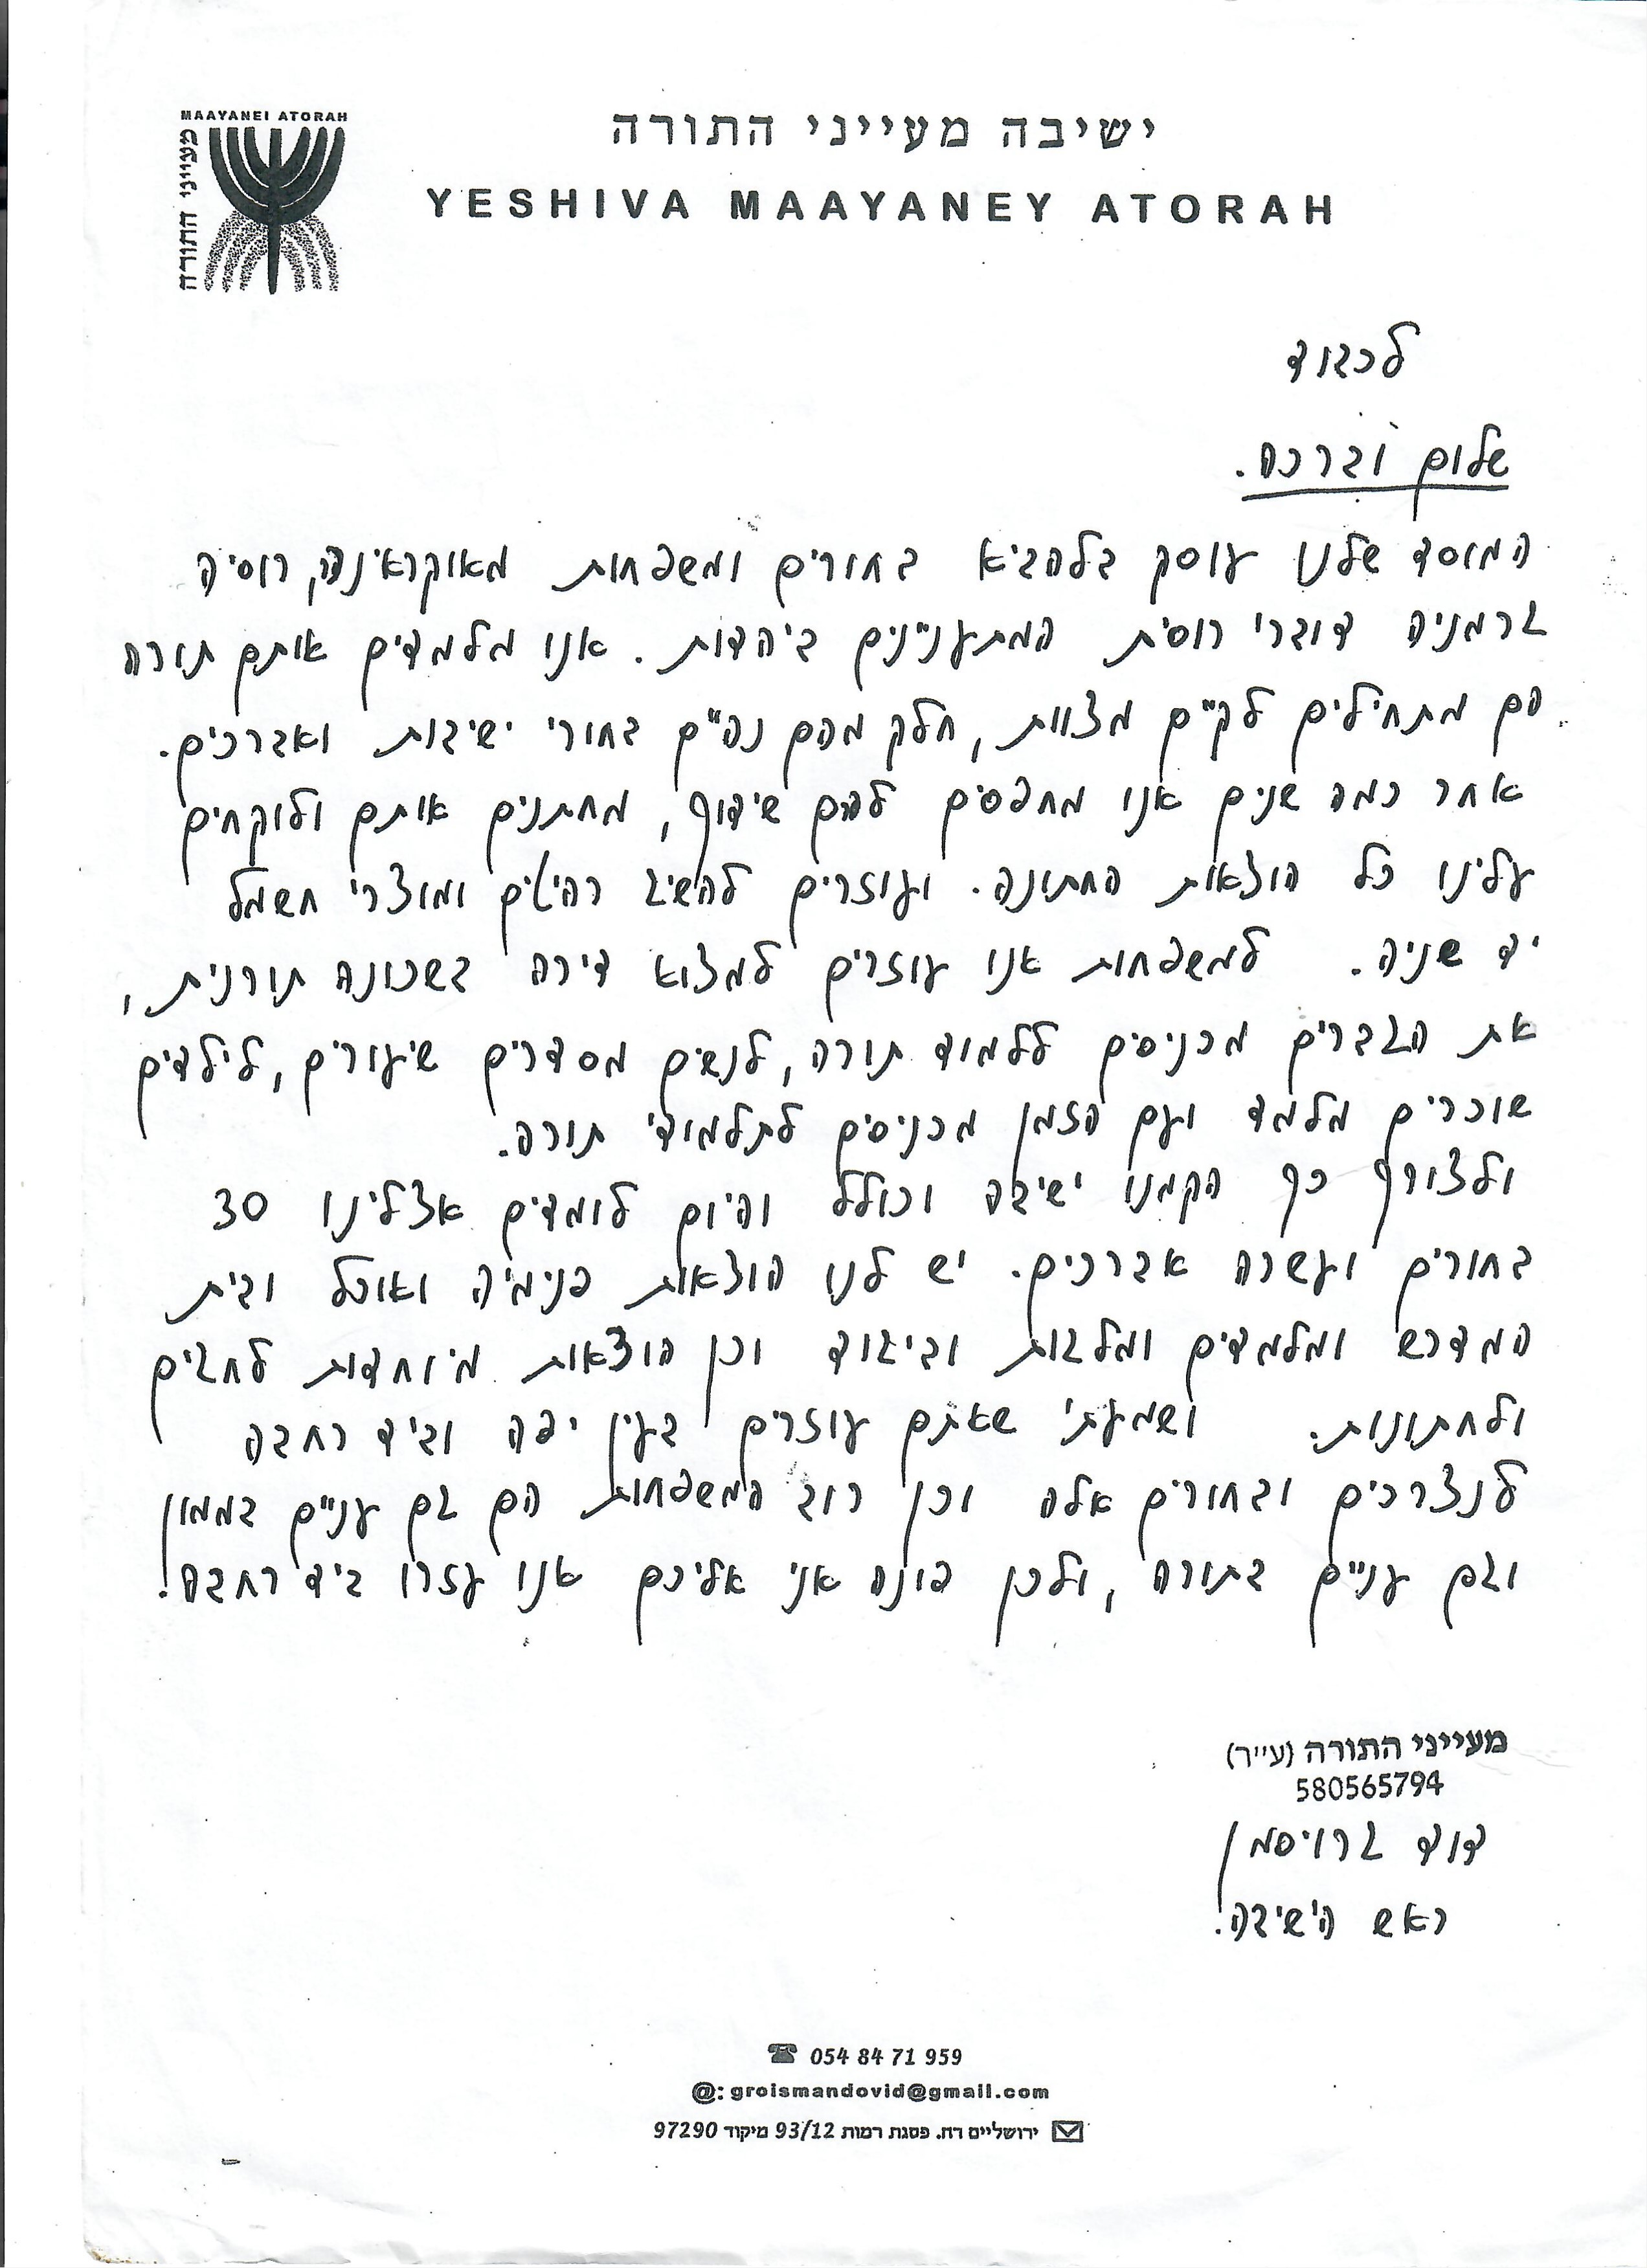 MAAYANEI ATORAH
מעייני התורה
ישיבה מעייני התורה
YESHIVA MAAYANEY ATORAH
לכבוד
שלום וברכה.
המוסד שלנו עוסק בלהביא בחורים ומשפחות מאוקראינה, רוסיה
גרמניה דוברי רוסית המתענינים ביהדות. אנו מלמדים אותם תורה
הם מתחילים לקיים מצוות, חלק מהם נהיים בחורי ישיבות ואברכים.
אחר כמה שנים אנו מחפסים להם שידוך, מחתנים אותם ולוקחים
עלינו כל הוצאות החתונה. ועוזרים להשיג רהיטים ומוצרי חשמל
יד שניה. למשפחות אנו עוזרים למצוא דירה בשכונה תורנית,
את הגברים מכניסים ללמוד תורה, לנשים מסדרים שיעורים, לילדים
שוכרים מלמד ועם הזמן מכניסים לתלמודי תורה.
ולצורך כך הקמנו ישיבה וכולל והיום לומדים אצלינו 30
בחורים ועשרה אברכים. יש לנו הוצאות פנימיה ואוכל ובית
המדרש ומלמדים ומלגות וביגוד וכן הוצאות מיוחדות לחגים
ולחתונות. ושמעתי שאתם עוזרים בעין יפה וביד רחבה
לנצרכים ובחורים אלה וכן רוב המשפחות הם גם עניים בממון
וגם עניים בתורה, ולכן פונה אני אליכם אנו עזרו ביד רחבה.
מעייני התורה (ע״ר)
580565794
דוד גרויסמן
ראש הישיבה.
054 84 71 959
@: groismandovid@gmail.com
ירושליים רח. פסגת רמות 93/12 מיקוד 97290